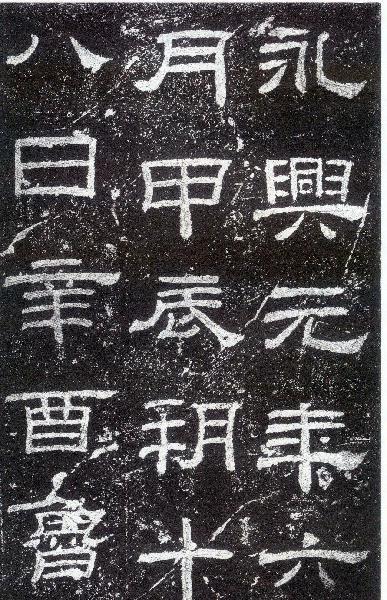 永興元年六
月甲辰朔十
八日辛酉魯